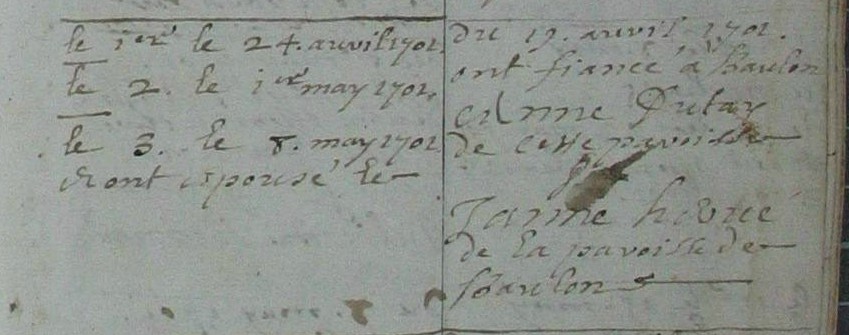 le 1er le 24. auvil 1701.
le 2. le 1er may 1701.
le 3. le 8. may 1701
et ont epousé le
Du 19. auvil 1701.
ont fiancé a Baulon
Dutay
de cette paroisse
Janne hervé
de la paroisse de
Baulon